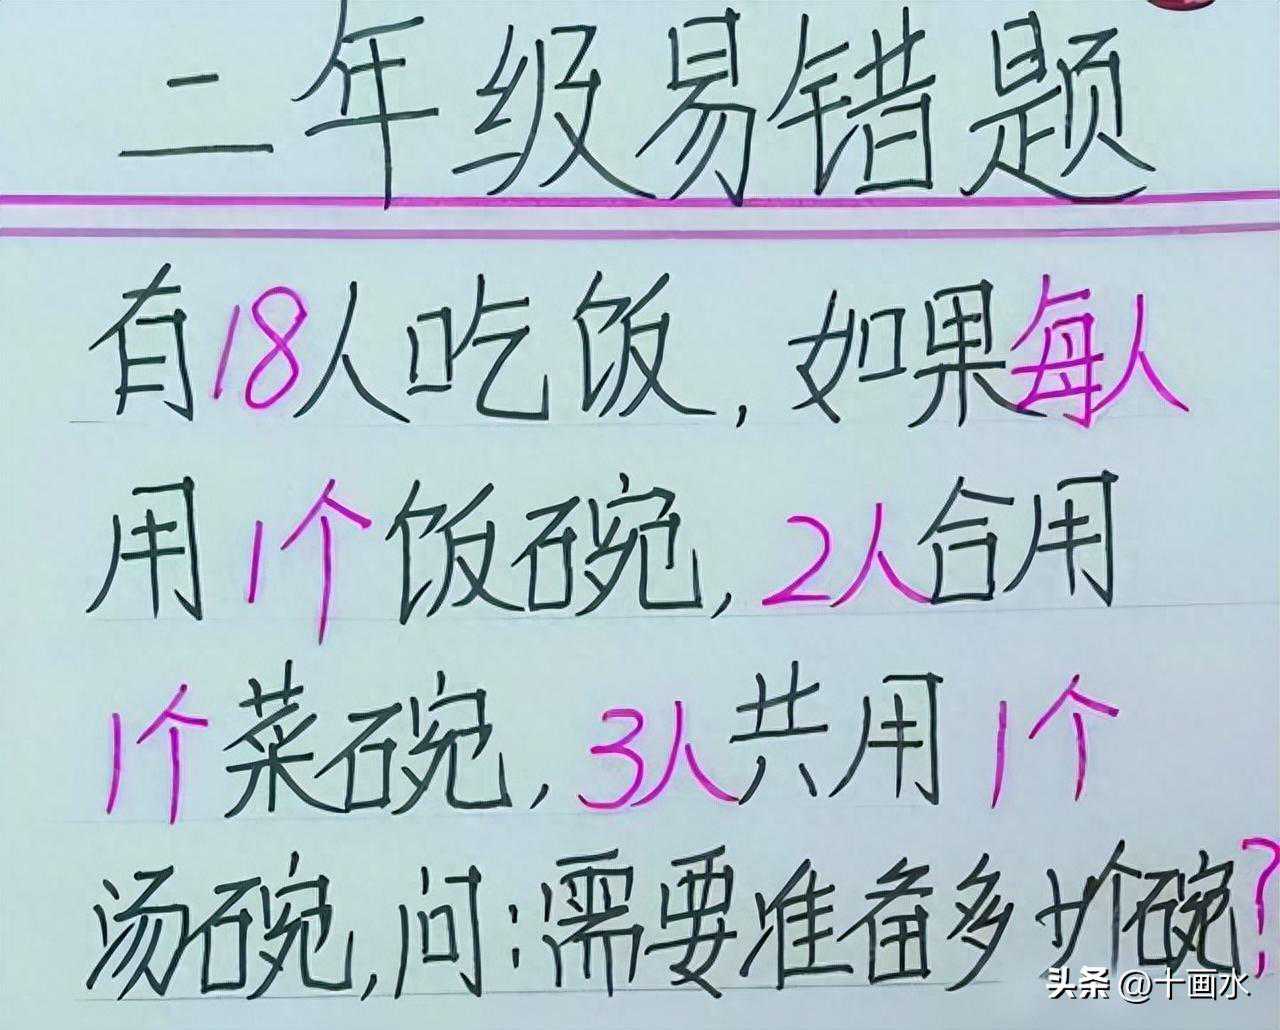 二年级易错题
有18人吃饭,如果每人
用1个饭碗,2人合用
1个菜碗,3人共用1个
汤碗,问:需要准备多少个碗?
头条 @十画水